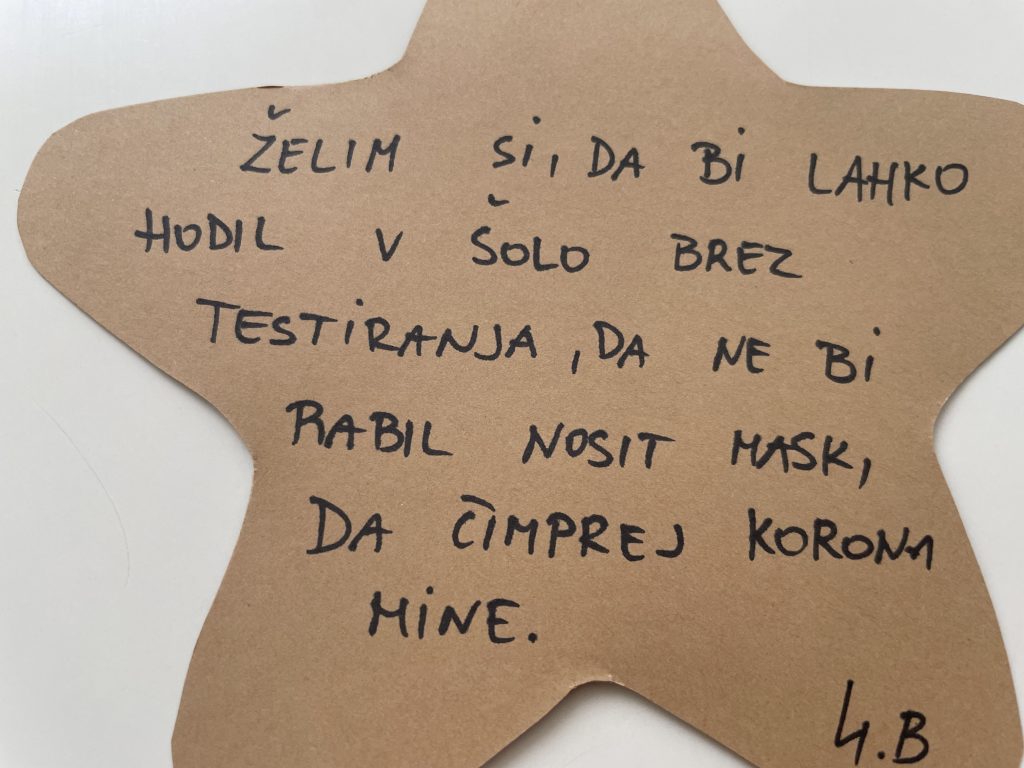 ŽELIM Si, DA Bi LAHKO
HODIL V ŠOLO BREZ
TESTiRANJA, DA NE Bi
RABIL NOSIT MASK,
DA ČIMPREJ KORONA
MiNE.
4.B